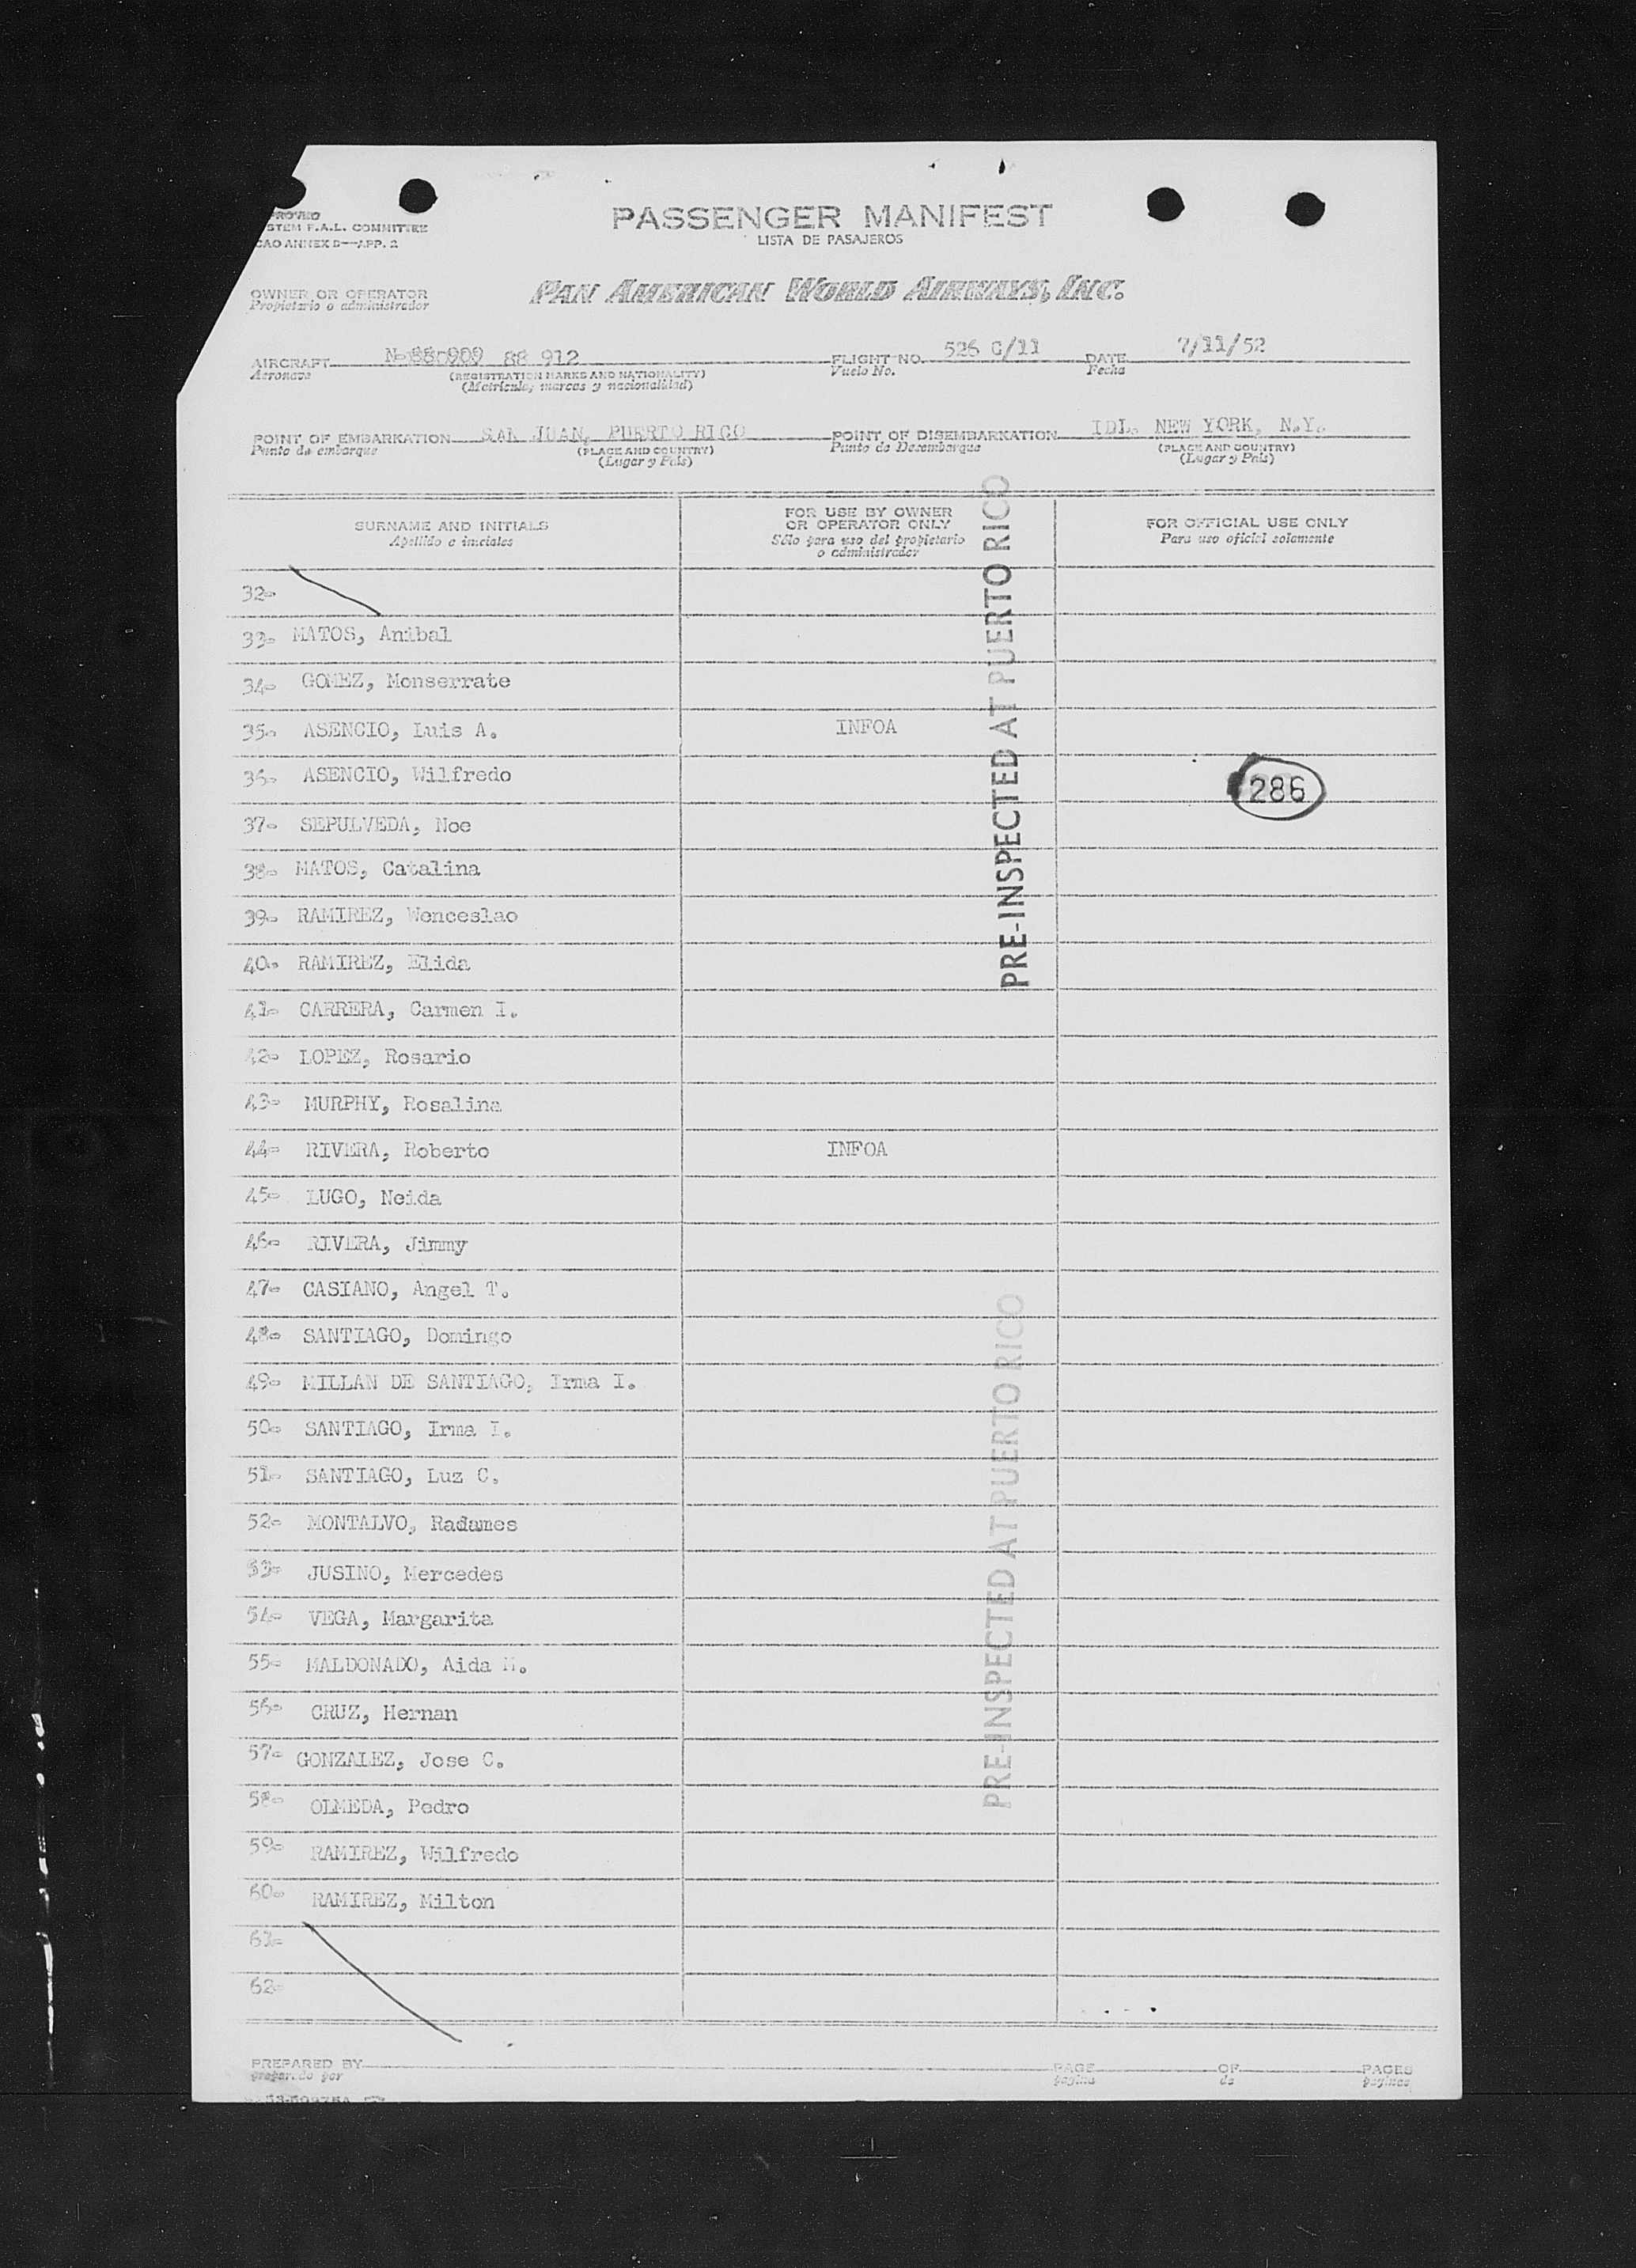 PROVED
STEM F.A.L. COMMITTEE
CAO ANNEX 9—APP. 2
PASSENGER MANIFEST
LISTA DE PASAJEROS
OWNER OR OPERATOR
Propietario o administrador
PAN AMERICAN WORLD AIRWAYS, INC.
AIRCRAFT N-88 909 88 912 FLIGHT NO. 526 C/11 DATE 7/11/52
Aeronave (REGISTRATION MARKS AND NATIONALITY) Vuelo No. Fecha
(Matricula, marcas y nacionalidad)
POINT OF EMBARKATION SAN JUAN, PUERTO RICO POINT OF DISEMBARKATION IDL. NEW YORK, N.Y.
Punto de embarque (PLACE AND COUNTRY) Punto de Desembarque (PLACE AND COUNTRY)
(Lugar y País) (Lugar y País)
SURNAME AND INITIALS
Apellido e iniciales
FOR USE BY OWNER
OR OPERATOR ONLY
Sólo para uso del propietario
o administrador
FOR OFFICIAL USE ONLY
Para uso oficial solamente
32-
33- MATOS, Anibal
34- GOMEZ, Monserrate
35- ASENCIO, Luis A. INFOA
36- ASENCIO, Wilfredo 286
37- SEPULVEDA, Noe
38- MATOS, Catalina
39- RAMIREZ, Wenceslao
40- RAMIREZ, Elida
41- CARRERA, Carmen I.
42- LOPEZ, Rosario
43- MURPHY, Rosalina
44- RIVERA, Roberto INFOA
45- LUGO, Neida
46- RIVERA, Jimmy
47- CASIANO, Angel T.
48- SANTIAGO, Domingo
49- MILLAN DE SANTIAGO, Irma I.
50- SANTIAGO, Irma I.
51- SANTIAGO, Luz C.
52- MONTALVO, Radames
53- JUSINO, Mercedes
54- VEGA, Margarita
55- MALDONADO, Aida M.
56- CRUZ, Hernan
57- GONZALEZ, Jose C.
58- OLMEDA, Pedro
59- RAMIREZ, Wilfredo
60- RAMIREZ, Milton
61-
62-
PRE-INSPECTED AT PUERTO RICO
PRE-INSPECTED AT PUERTO RICO
PREPARED BY PAGE OF PAGES
preparado por página de páginas